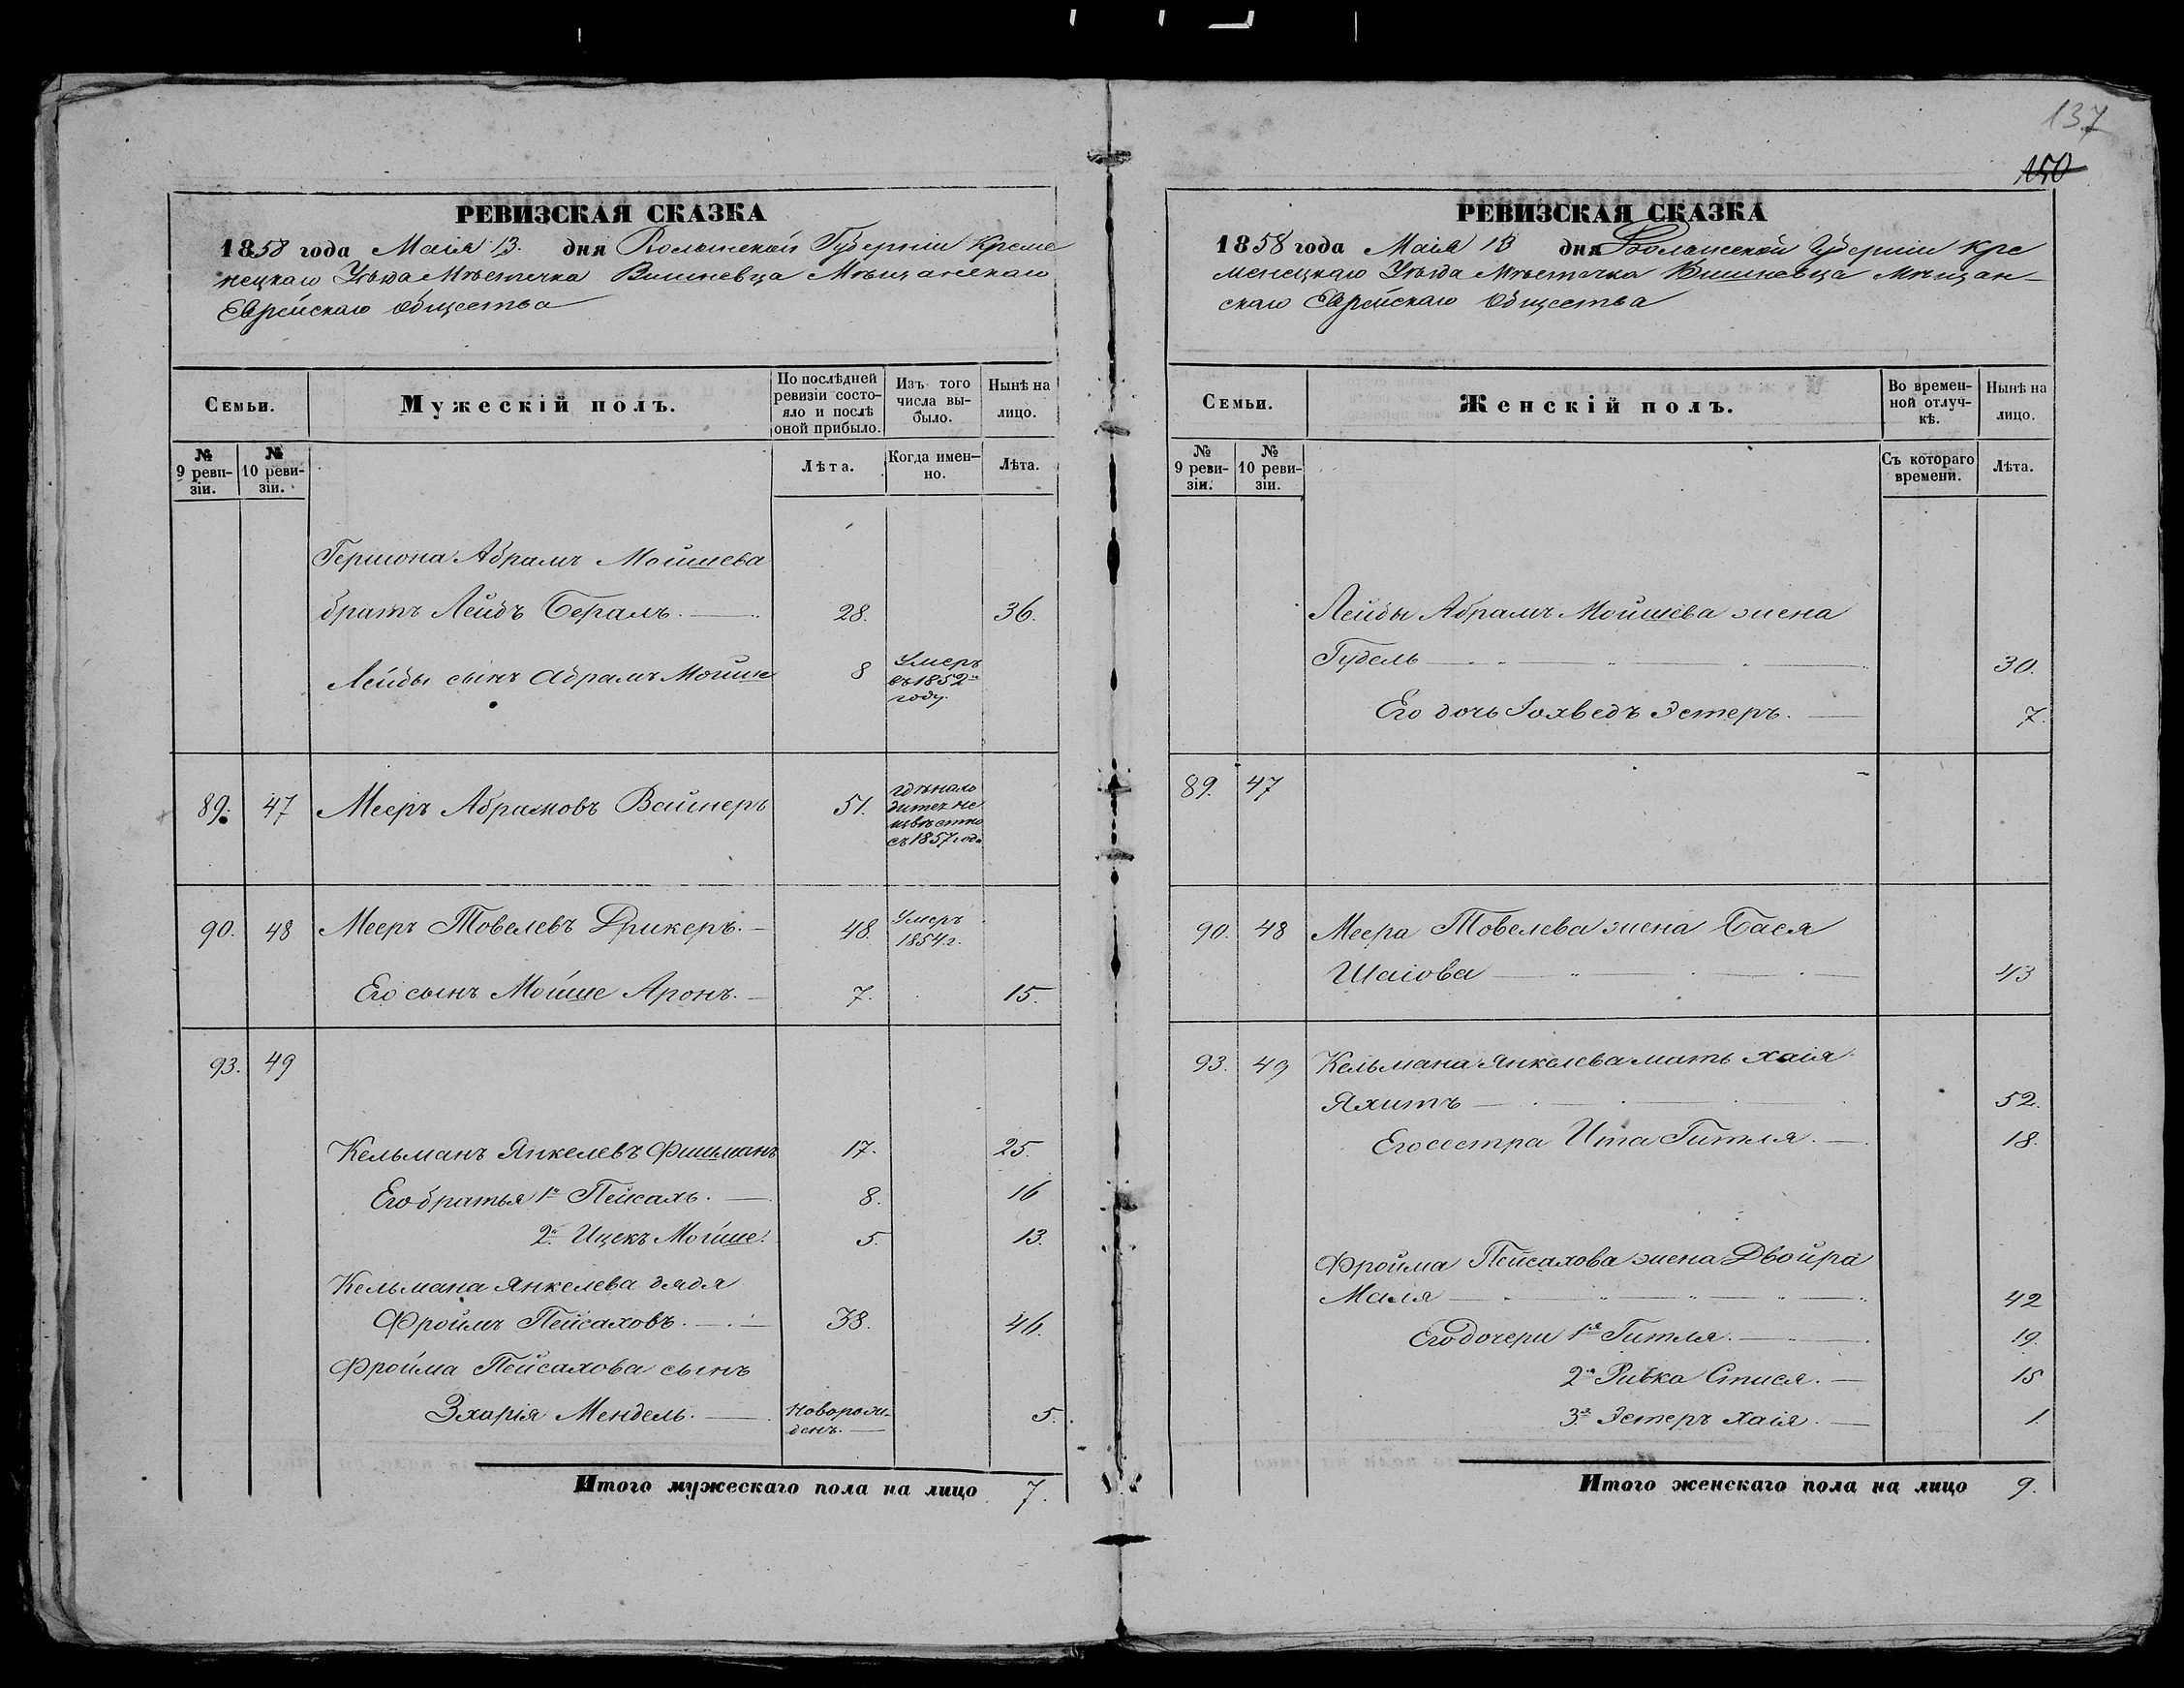 РЕВИЗСКАЯ СКАЗКА
1858 года Маія 13. дня Волынской Губерніи Креме
нецкаго Уѣзда Мѣстечка Вишневца Мѣщанскаго
Еврейскаго Общества
Семьи.
Мужескій полъ.
По послѣдней ревизіи состо-
яло и послѣ оной прибыло.
Изъ того числа вы-
было.
Нынѣ на лицо.
№ 9 реви-
зіи.
№ 10 реви-
зіи.
Лѣта.
Когда имен-
но.
Лѣта.
Гершона Абрамъ Мойшева
братъ Лейбъ Бералъ. 28. 36.
Лейбы сынъ Абрамъ Мойше 8 Умеръ
въ 1852м
году.
89. 47 Мееръ Абрамовъ Вайнеръ 51. гдѣ нахо
дитсѧ не
извѣстно
съ 1857 года
90. 48 Мееръ Товелевъ Дрикеръ. 48. Умеръ
1854 г.
Его сынъ Мойше Аронъ. 7. 15.
93. 49
Кельманъ Янкелевъ Фишманъ 17. 25.
Его братья 1й Пейсахъ. 8. 16
2й Ицекъ Мойше. 5. 13.
Кельмана Янкелева дядя
Фроймъ Пейсаховъ. 38. 46.
Фройма Пейсахова сынъ
Зхарія Мендель. Новорож-
денъ. 5.
Итого мужескаго пола на лицо 7.
137
150
РЕВИЗСКАЯ СКАЗКА
1858 года Маія 13 дня Волынской Губерніи Кре
менецкаго Уѣзда Мѣстечка Вишневца Мѣщан-
скаго Еврейскаго Общества
Семьи.
Женскій полъ.
Во времен-
ной отлуч-
кѣ.
Нынѣ на лицо.
№ 9 реви-
зіи.
№ 10 реви-
зіи.
Съ котораго времени.
Лѣта.
Лейбы Абрамъ Мойшева жена
Гудель 30.
Его дочь Іохведъ Эстеръ. 7.
89. 47
90. 48 Меера Товелева жена Бася
Шаіова 43
93. 49 Кельмана Янкелева мать Хаія
Яхитъ 52.
Его сестра Ита Гитля. 18.
Фройма Пейсахова жена Двойра
Маля 42
Его дочери 1я Гитля. 19.
2я Ривка Спися. 15
3я Эстеръ Хаія. 1.
Итого женскаго пола на лицо 9.